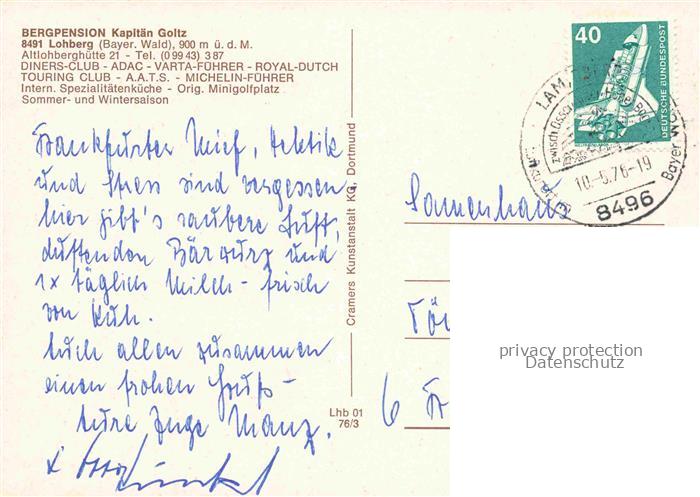 BERGPENSION Kapitän Goltz
8491 Lohberg (Bayer. Wald), 900 m ü. d. M.
Altlohberghütte 21 - Tel. (0 99 43) 3 87
DINERS-CLUB - ADAC - VARTA-FÜHRER - ROYAL-DUTCH
TOURING CLUB - A.A.T.S. - MICHELIN-FÜHRER
Intern. Spezialitätenküche - Orig. Minigolfplatz
Sommer- und Wintersaison
Frankfurter Mief, Hektik
und Stress sind vergessen
hier gibt's saubere Luft,
duftenden Bärwurz und
1x täglich Milch - frisch
von Kuh.
Euch allen zusammen
einen frohen Gruß -
Eure Inge Manz.
Cramers Kunstanstalt KG, Dortmund
Lhb 01
76/3
40
DEUTSCHE BUNDESPOST
LAM,
zwischen Osser
10.-5.76-19
8496
Bayer Wald
Sonnenhaus
6 Fr
privacy protection
Datenschutz